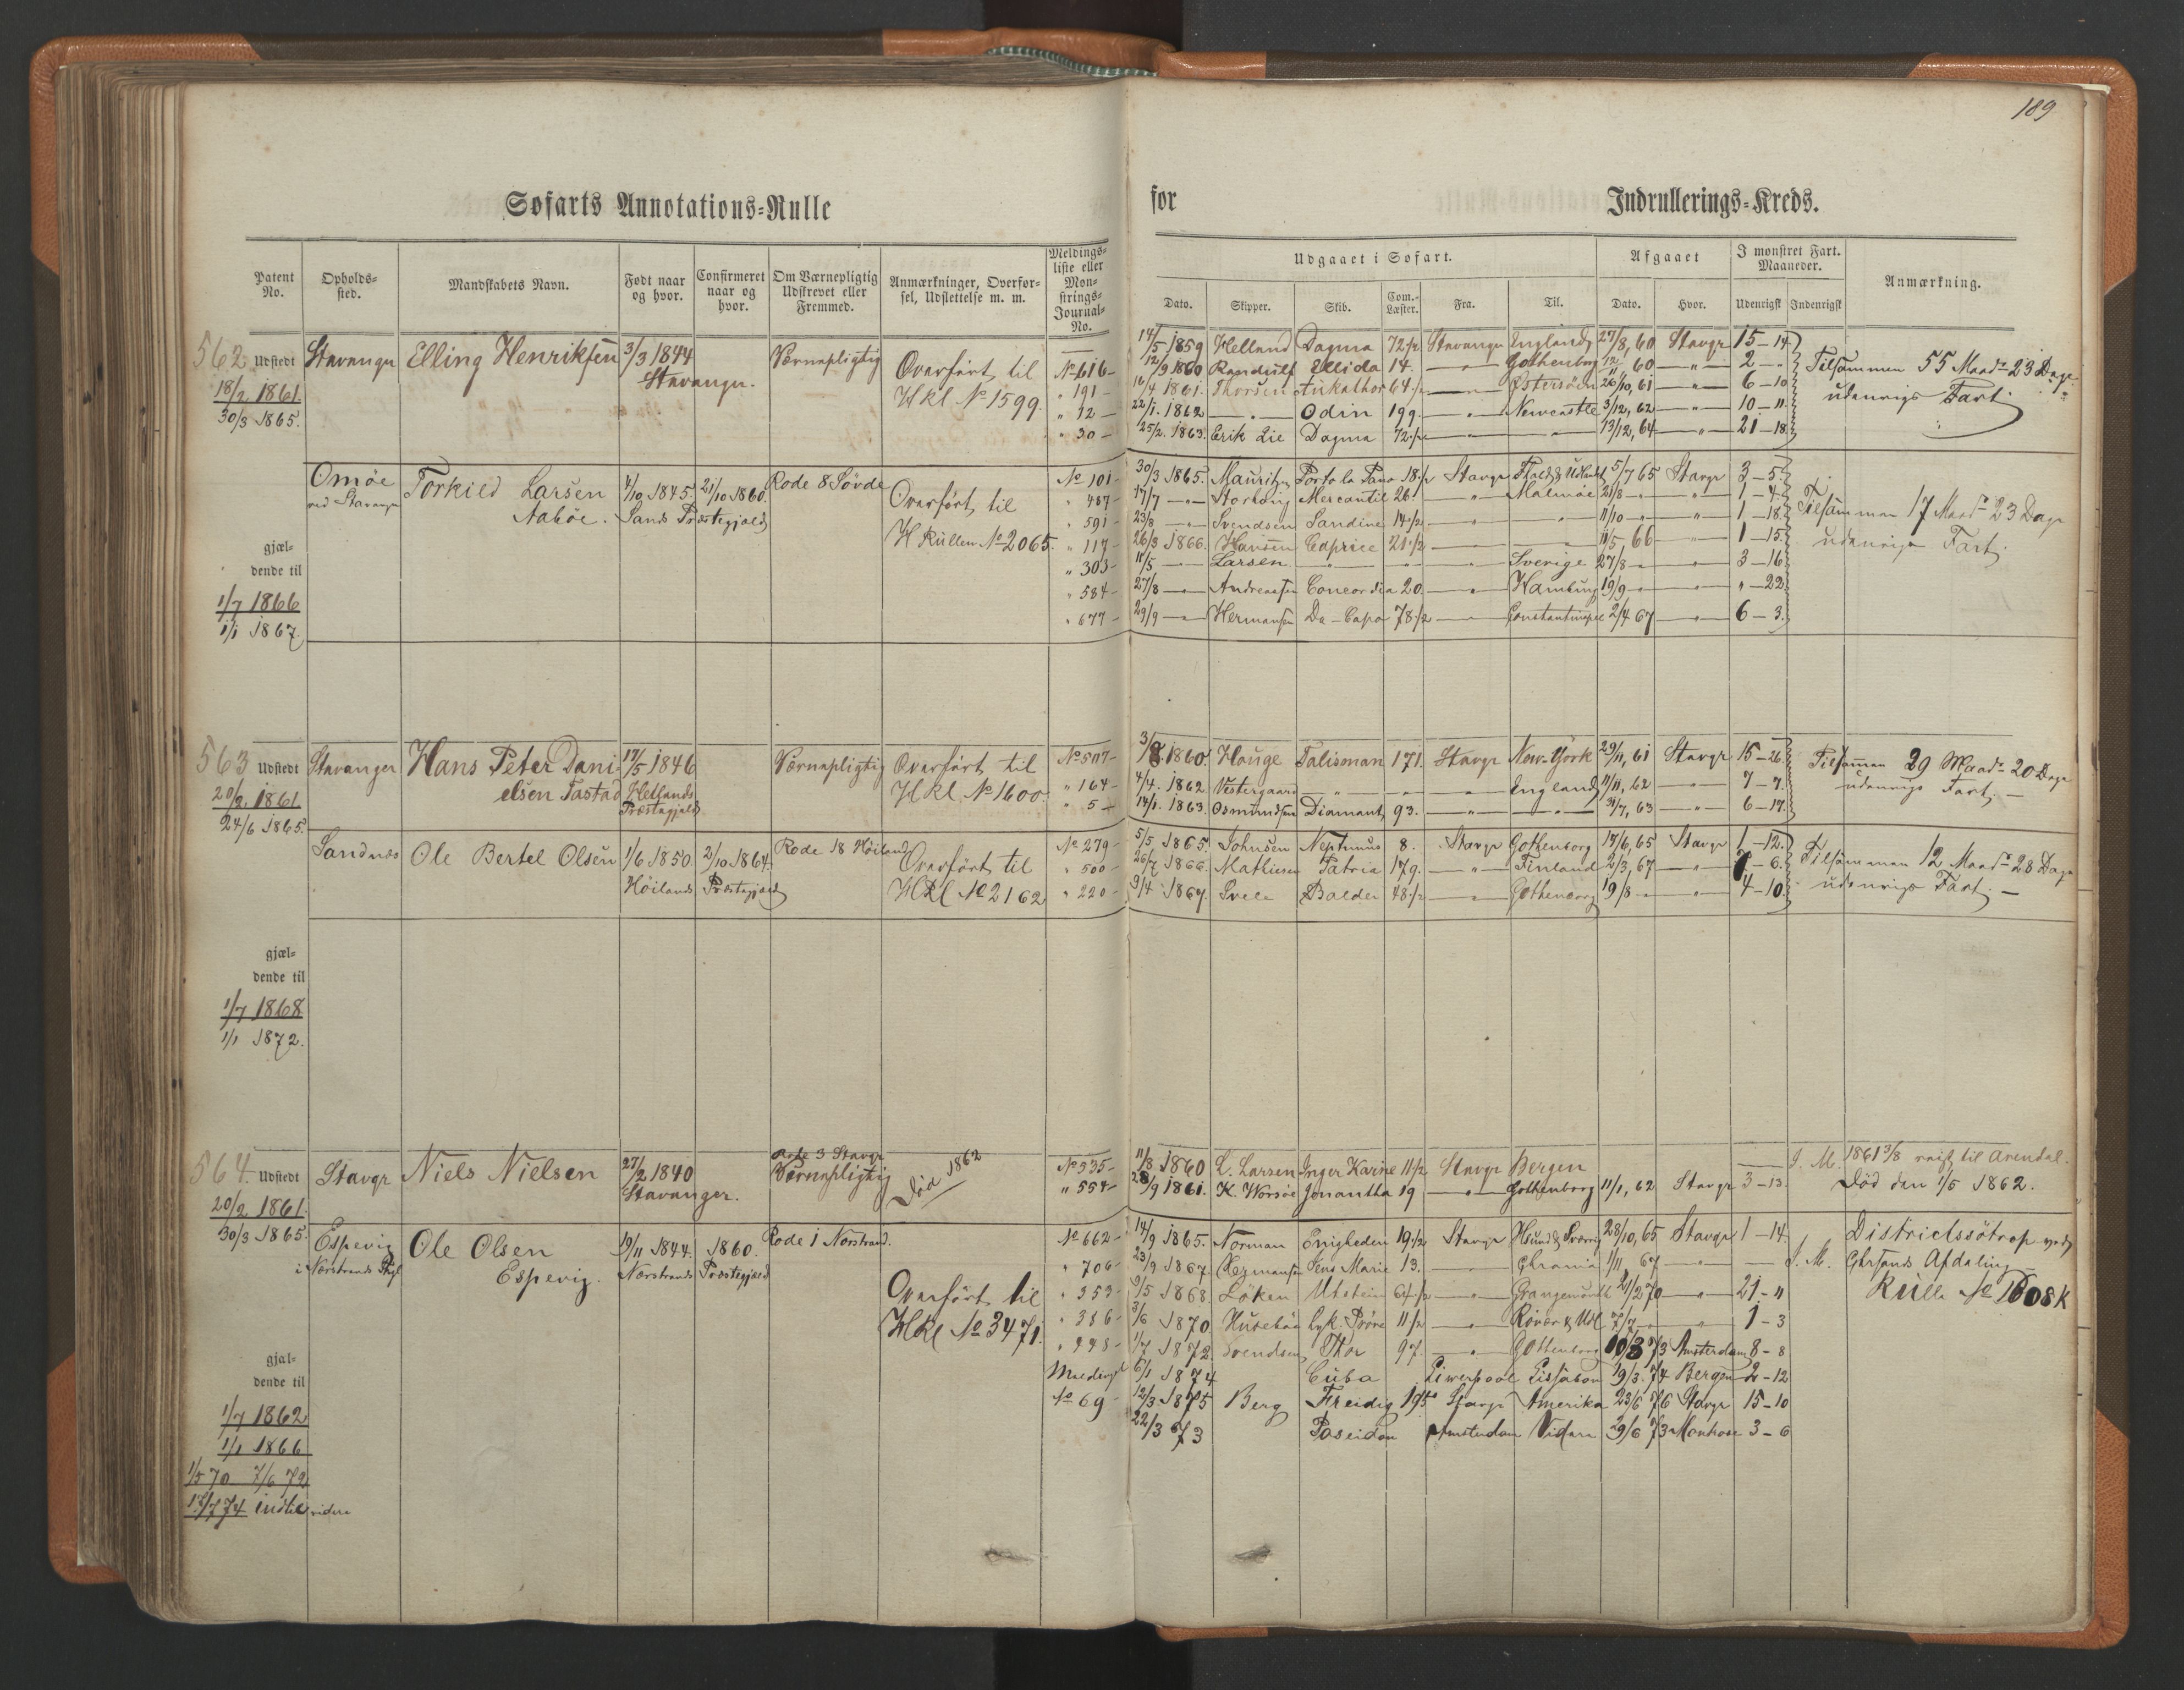 189
Søfarts Annotations-Rulle for Indrullerings-Kreds.
Patent No. Opholds-sted. Mandskabets Navn. Født naar og hvor. Confirmeret naar og hvor. Om Værnepligtig Udskrevet eller Fremmed. Anmærkninger, Overfør-sel, Udslettelse m. m. Meldings-liste eller Møn-strings-Journal-No.
Udgaaet i Søfart. Afgaaet I mønstret Fart. Maaneder. Anmærkning.
Dato. Skipper. Skib. Com.-Læster. Fra. Til. Dato. Hvor. Udenrigsk Indenrigsk
562 Udstedt Stavanger Elling Henriksen 3/3 1844 Værnepligtig Overført til No 616 14/5 1859 Helland Dagma 72 1/2 Stavanger England 27/8, 60 Stavgr 15-14
18/2 1861. Stavanger. Hkl No 1599. " 191 12/9 1860 Ellida 14. Gothenborg 60 " 2 - " Tilsammen 55 Maadr 23 Dage
30/3 1865. " 12 16/4 1861. Thorsen 64 1/2 Østersöen 26/10, 61 " 6-10 udenrigs Fart.
22/1. 1862 " Odin 199. " Newcastle 3/12, 62 " 10-11.
" 30 25/2. 1863. Erik Lie Dagma 72 1/2 " 13/12, 64 " 21-18.
Omöe Torkild Larsen 4/10 1845. 21/10 1860. Rode 8 Søvde Overført til No 101 30/3 1865. Mauritz 18 1/2 Stavgr 5/7 65 Stavgr 3-5.
ved Stavanger Aaböe. Sands Præstegjæld H Rullen No 2065. " 487 17/7 Mercantil 26. " Malmøe 21/8 " 1-4
" 591 23/8 Svendsen Sandine 14 1/2 " 11/10 1-18. Tilsammen 17 Maadr 23 Dage
gjæl-dende til " 117 26/3 1866. Hansen Caprice 21 1/2 " 11/5 66 " 1-15. udenrigs Fart.
" 303 11/5 Larsen " " Sverige 27/8 3-16
1/7 1866 " 584 27/8 Andreassen Concordia 20. " Hamburg 19/9 " " -22
1/1 1867. " 677 29/9 Hermansen Da-Capo 78 1/2 " Constantinopel 2/4 67 " 6-3.
563 Udstedt Stavanger Hans Peter Dani- 17/5 1846 Værnepligtig Overført til No 507 3/8 1860. Hauge Talisman 171. Stavgr New-York 29/11, 61 Stavgr 15-26
20/2. 1861. elsen Tastad Hetlands Præstegjæld Hkl No 1600. " 164 4/4. 1862 Vestergaard " " England 11/11, 62 " 7-7. Tilsammen 29 Maadr 20 Dage
24/6 1865. " 5 14/1. 1863. Osmundsen Diamant 93. " 31/7, 63 " 6-17. udenrigs Fart.
Sandnæs Ole Bertel Olsen 1/6 1850. 2/10 1864. Rode 18 Høiland Overført til No 279 5/5 1865. Johnsen Neptunus 8. Stavgr Gothenborg 17/6, 65 Stavgr 1-12.
Höilands Præstegjæld Hkl No 2162 " 500 26/7 1866. Mathiesen Patria 179. " Finland 2/3, 67 " 7-6. Tilsammen 12 Maadr 28 Dage
" 220 9/4 1867. Svele Balder 48 1/2 " Gothenborg 19/8 " 4-10. udenrigs Fart.
gjæl-dende til
1/7 1868
1/1 1872.
564. Udstedt Stavgr Niels Nielsen 27/2 1840 Rode 3 Stavgr Værnepligtig Död 1862 No 335 11/8 1860 L. Larsen Inger Karine 11 1/2 Stavgr Bergen I. M. 1861 3/8 reist til Arendal.
20/2 1861. Stavanger. " 554 28/9 1861. K. Worsöe Jonantha 19 " Gothenborg 11/1, 62 Stavgr 3-13. Död den 1/5 1862.
30/3 1865. Espevig Ole Olsen 19/11 1844. 1860. Rode 1 Nærstrand. No 662 14/9 1865. Norman Enigheden 19 1/2 Stavgr 28/10, 65 Stavgr 1-14. Districtssötrop ved
i Nærstrands Pgjl Espevig. Nærstrands Præstegjæld " 706 23/9 1867. Hermansen Jens Marie 13. " Chrania 1/11 67 " I. M. Chrsands Afdeling
Overført til " 353 9/5 1868. Löken Utstein " Grangemouth 21/2 70 " 21-11 Rulle No 1608 K
Hkl No 3471. " 316 3/6 1870 Husebøe 11 1/2 " 1-3
gjæl-dende til 1/7 1872. Svendsen Thor 97. " Gothenborg 10/3 73 Amsterdam 8-8
1/7 1862 6/1 1874 Cuba Liverpool Lissabon 19/3. 74 Bergen 2-12
1/1 1866 No 69 12/3 1875 Berg Freidig 195 Stavgr Amerika 23/6 76 Stavgr 15-10
1/5 70 7/6 72 22/3 73 Poseidon Amsterdam 29/6 73 3-6
17/7 74 indtil videre